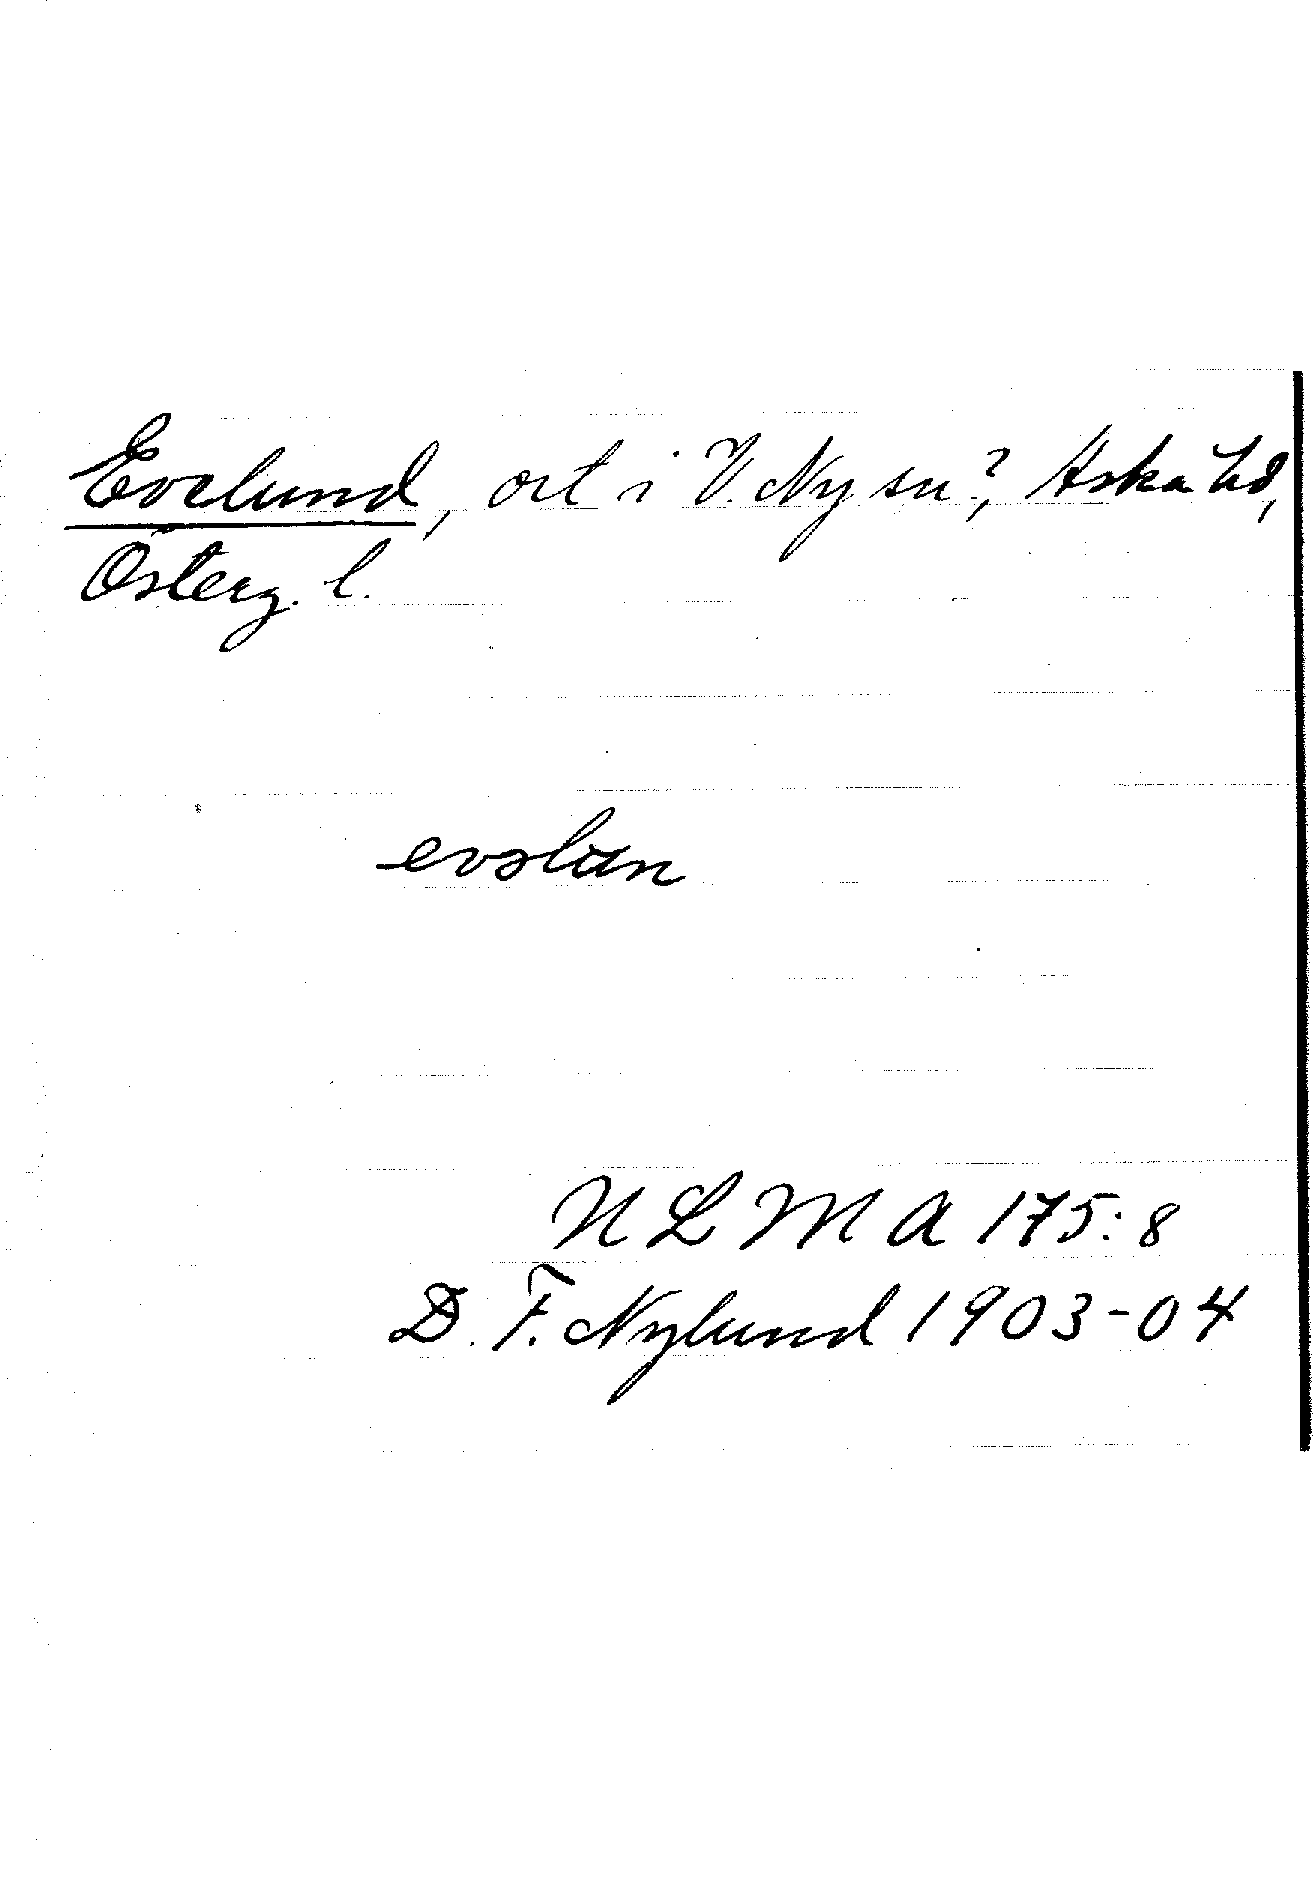 Evelund, ort i V. Ny sn?, Aska hd,
Österg. l.
evəlun
N L M A 175:8
D. F. Nylund 1903-04